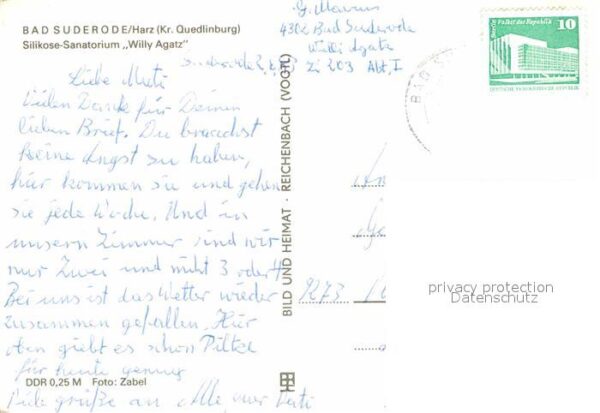 BAD SUDERODE/Harz (Kr. Quedlinburg)
Silikose-Sanatorium „Willy Agatz"
4302 Bad Suderode
Willi Agatz
Zi 203 Abt, I
Liebe Muti
Vielen Dank für Deinen
lieben Brief. Du brauchst
keine Angst zu haben,
hier kommen sie und gehen
sie jede Woche. Und in
unsern Zimmer sind wir
nur Zwei und nicht 3 oder
Bei uns ist das Wetter wieder
zusammen gefallen. Hier
oben giebt es schon Piltze
für heute genug
Viele grüße an Alle
DDR 0,25 M Foto: Zabel
BILD UND HEIMAT · REICHENBACH (VOGTL)
Berlin Palast der Republik 10
DEUTSCHE DEMOKRATISCHE REPUBLIK
BAD S
9273
privacy protection
Datenschutz